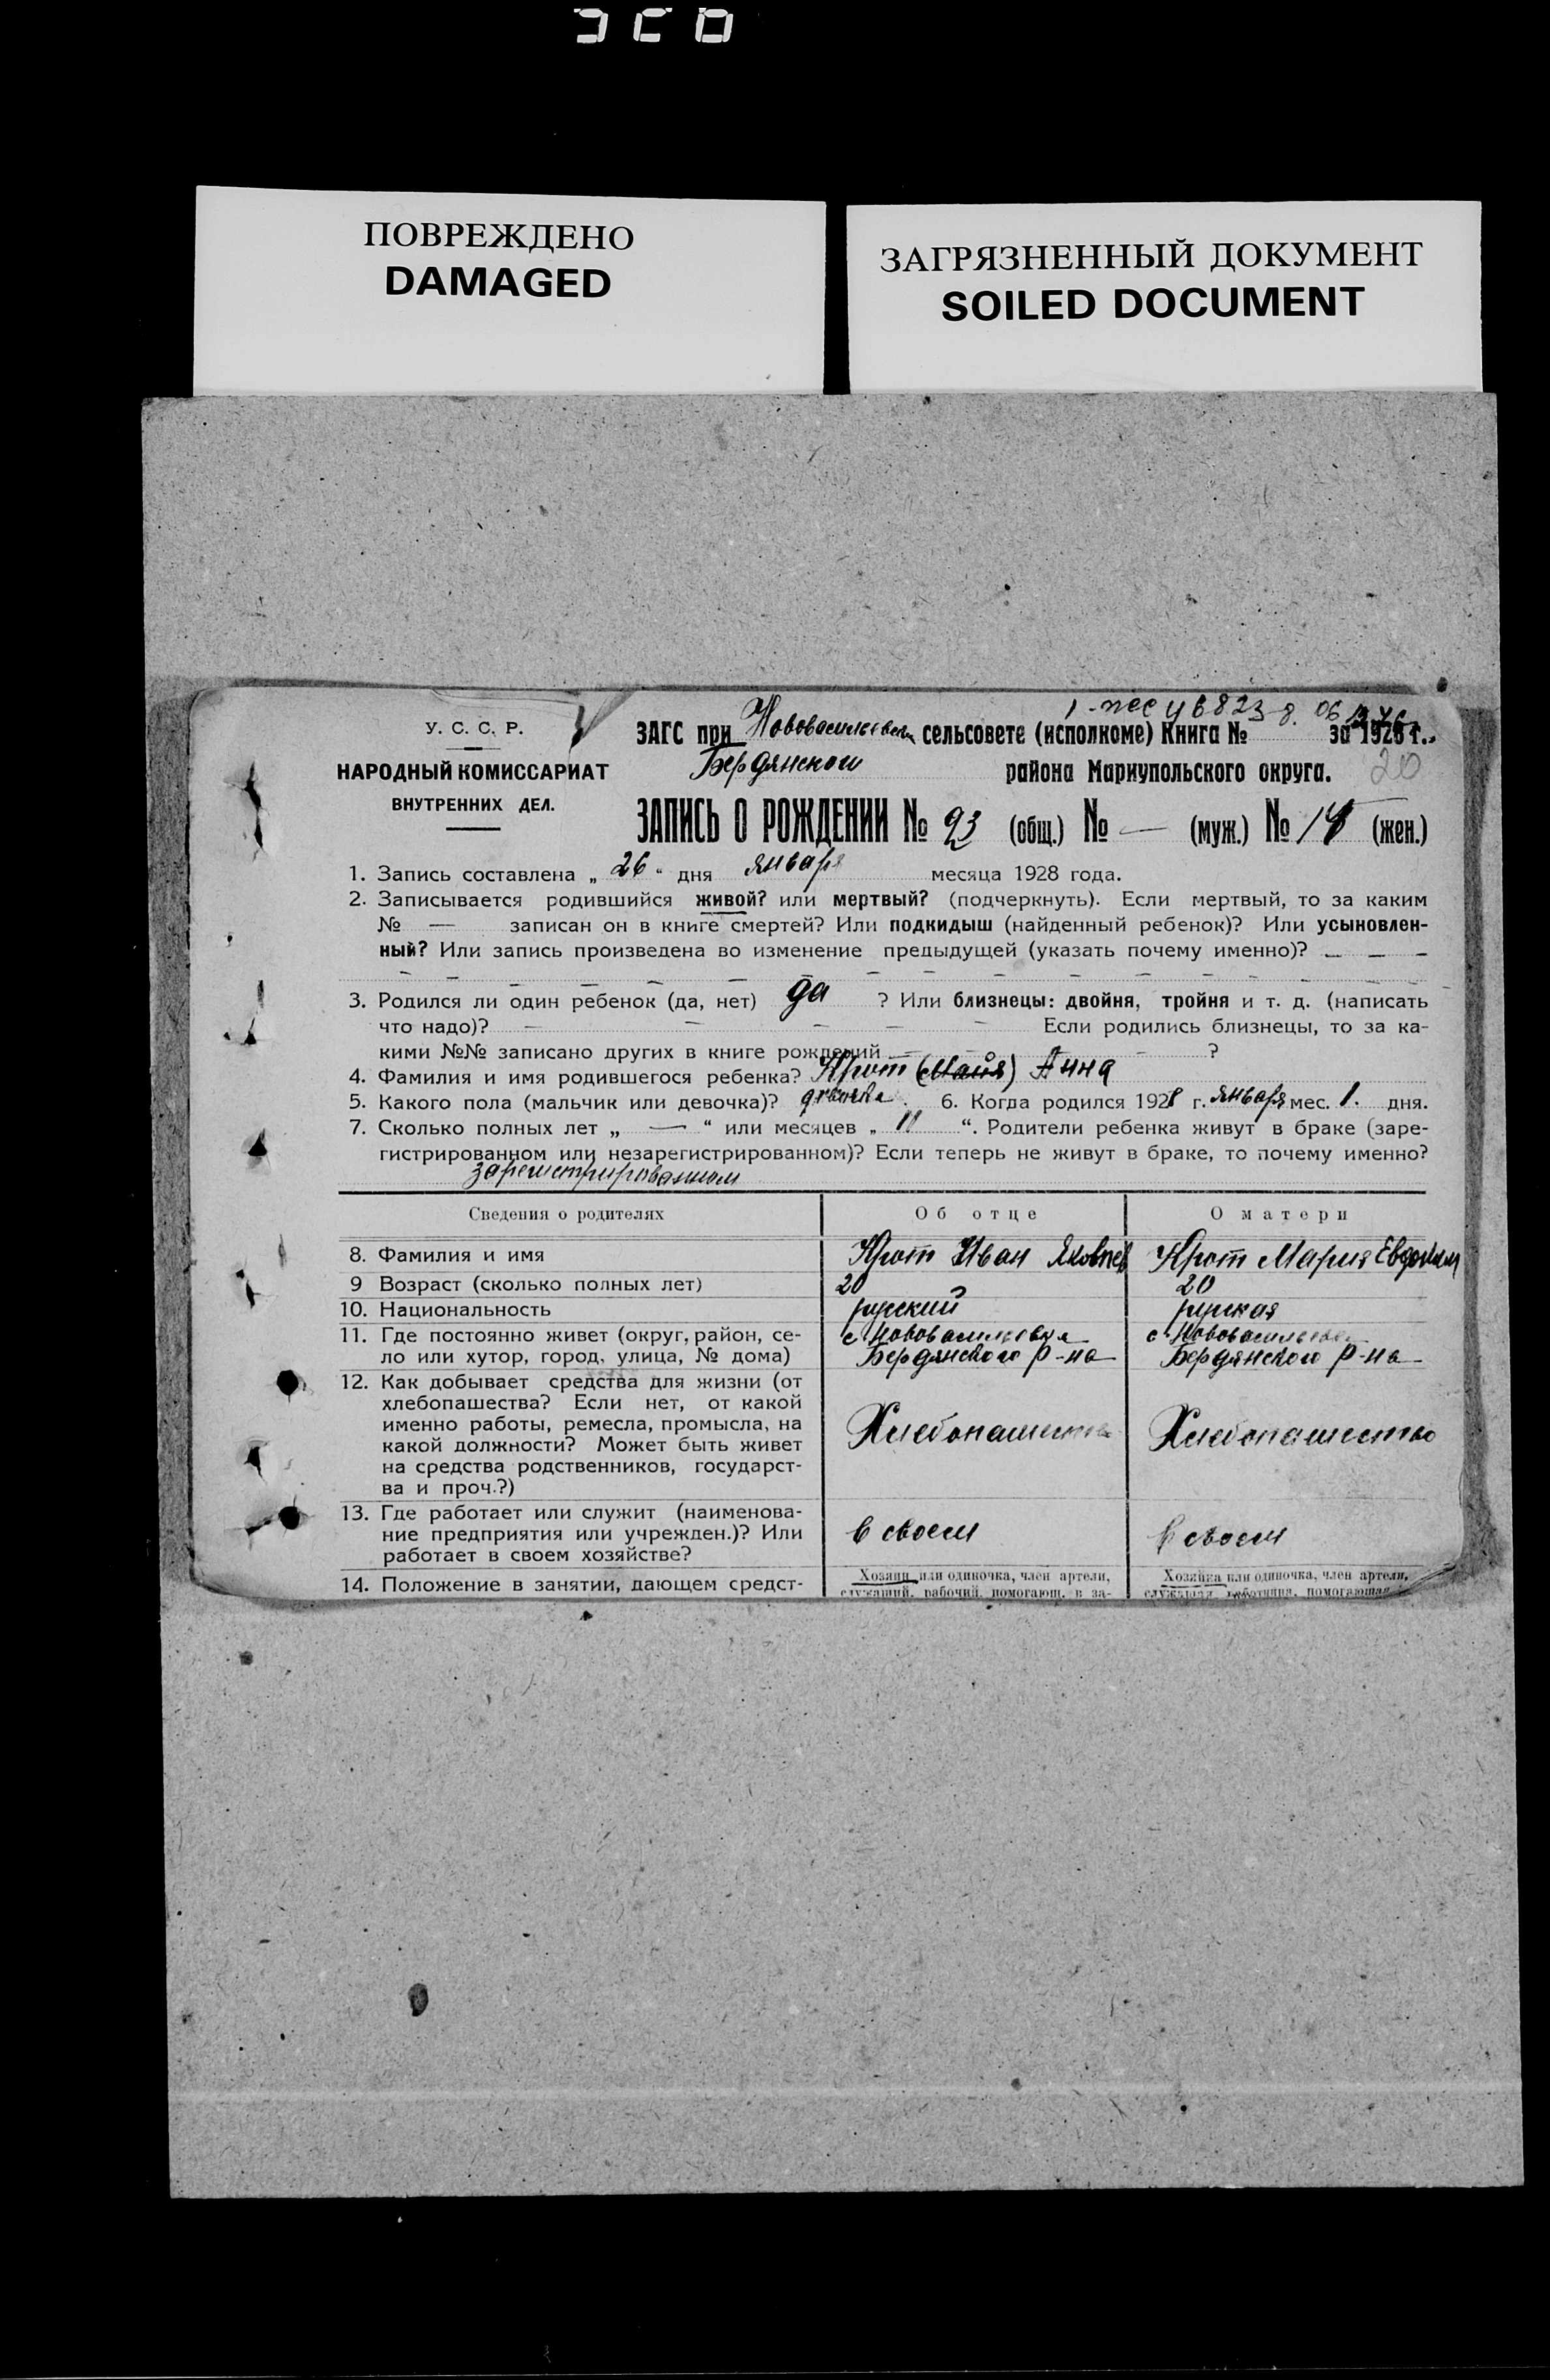 ПОВРЕЖДЕНО
DAMAGED
ЗАГРЯЗНЕННЫЙ ДОКУМЕНТ
SOILED DOCUMENT
У. С. С. Р.
НАРОДНЫЙ КОМИССАРИАТ
ВНУТРЕННИХ ДЕЛ.
ЗАГС при сельсовете (исполкоме) Книга № за 1928 г.
Бердянском района Мариупольского округа. 20
ЗАПИСЬ О РОЖДЕНИИ № 23 (общ.) № — (муж.) № (жен.)
1. Запись составлена „ 26 “ дня января месяца 1928 года.
2. Записывается родившийся живой? или мертвый? (подчеркнуть). Если мертвый, то за каким
№ — записан он в книге смертей? Или подкидыш (найденный ребенок)? Или усыновлен-
ный? Или запись произведена во изменение предыдущей (указать почему именно)? — — —
3. Родился ли один ребенок (да, нет) да ? Или близнецы: двойня, тройня и т. д. (написать
что надо)? — — — — — Если родились близнецы, то за ка-
кими №№ записано других в книге рождений — — ?
4. Фамилия и имя родившегося ребенка? Крот (Майя) Анна
5. Какого пола (мальчик или девочка)? девочка. 6. Когда родился 1928 г. января мес. 1. дня.
7. Сколько полных лет „ — “ или месяцев „ “. Родители ребенка живут в браке (заре-
гистрированном или незарегистрированном)? Если теперь не живут в браке, то почему именно?
зарегистрированном
Сведения о родителях Об отце О матери
8. Фамилия и имя Крот Иван Яковлев Крот Мария Евдоким
9 Возраст (сколько полных лет) 20 20
10. Национальность русский русская
11. Где постоянно живет (округ, район, се-
ло или хутор, город, улица, № дома)
с Нововасильевка
Бердянского р-на
с Нововасильевка
Бердянского р-на
12. Как добывает средства для жизни (от
хлебопашества? Если нет, от какой
именно работы, ремесла, промысла, на
какой должности? Может быть живет
на средства родственников, государст-
ва и проч.?)
Хлебопашество
Хлебопашество
13. Где работает или служит (наименова-
ние предприятия или учрежден.)? Или
работает в своем хозяйстве?
в своем
в своем
14. Положение в занятии, дающем средст-
Хозяин или одиночка, член артели,
служащий, рабочий, помогающ. в за-
Хозяйка или одиночка, член артели,
служащая, работница, помогающая